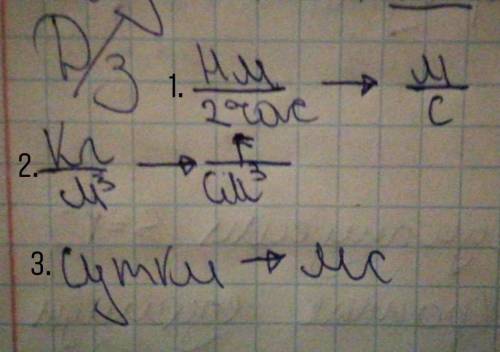 Д/З
1. нм/2 час → м/с
2. кг/м³ → г/см³
3. сутки → мс